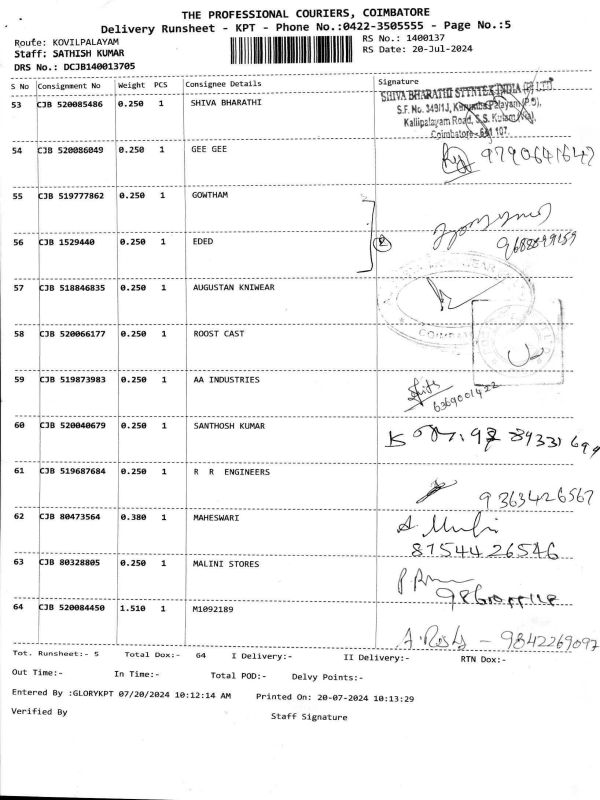 THE PROFESSIONAL COURIERS, COIMBATORE
Delivery Runsheet - KPT - Phone No.:0422-3505555 - Page No.:5
Route: KOVILPALAYAM RS No.: 1400137
Staff: SATHISH KUMAR RS Date: 20-Jul-2024
DRS No.: DCJB140013705
S No Consignment No Weight PCS Consignee Details Signature
53 CJB 520085486 0.250 1 SHIVA BHARATHI
SHIVA BHARATHI SYNTEX INDIA (P) LTD
S.F. No. 349/1J,
Kallipalayam Road, S.S. Kulam
Coimbatore - 641 107.
54 CJB 520086049 0.250 1 GEE GEE 9790641647
55 CJB 519777862 0.250 1 GOWTHAM
56 CJB 1529440 0.250 1 EDED 2
57 CJB 518846835 0.250 1 AUGUSTAN KNIWEAR
58 CJB 520066177 0.250 1 ROOST CAST
59 CJB 519873983 0.250 1 AA INDUSTRIES 6369001422
60 CJB 520040679 0.250 1 SANTHOSH KUMAR
61 CJB 519687684 0.250 1 R R ENGINEERS 9363426567
62 CJB 80473564 0.380 1 MAHESWARI
8754426546
63 CJB 80328805 0.250 1 MALINI STORES
64 CJB 520084450 1.510 1 M1092189 - 9842269097
Tot. Runsheet:- 5 Total Dox:- 64 I Delivery:- II Delivery:- RTN Dox:-
Out Time:- In Time:- Total POD:- Delvy Points:-
Entered By :GLORYKPT 07/20/2024 10:12:14 AM Printed On: 20-07-2024 10:13:29
Verified By Staff Signature